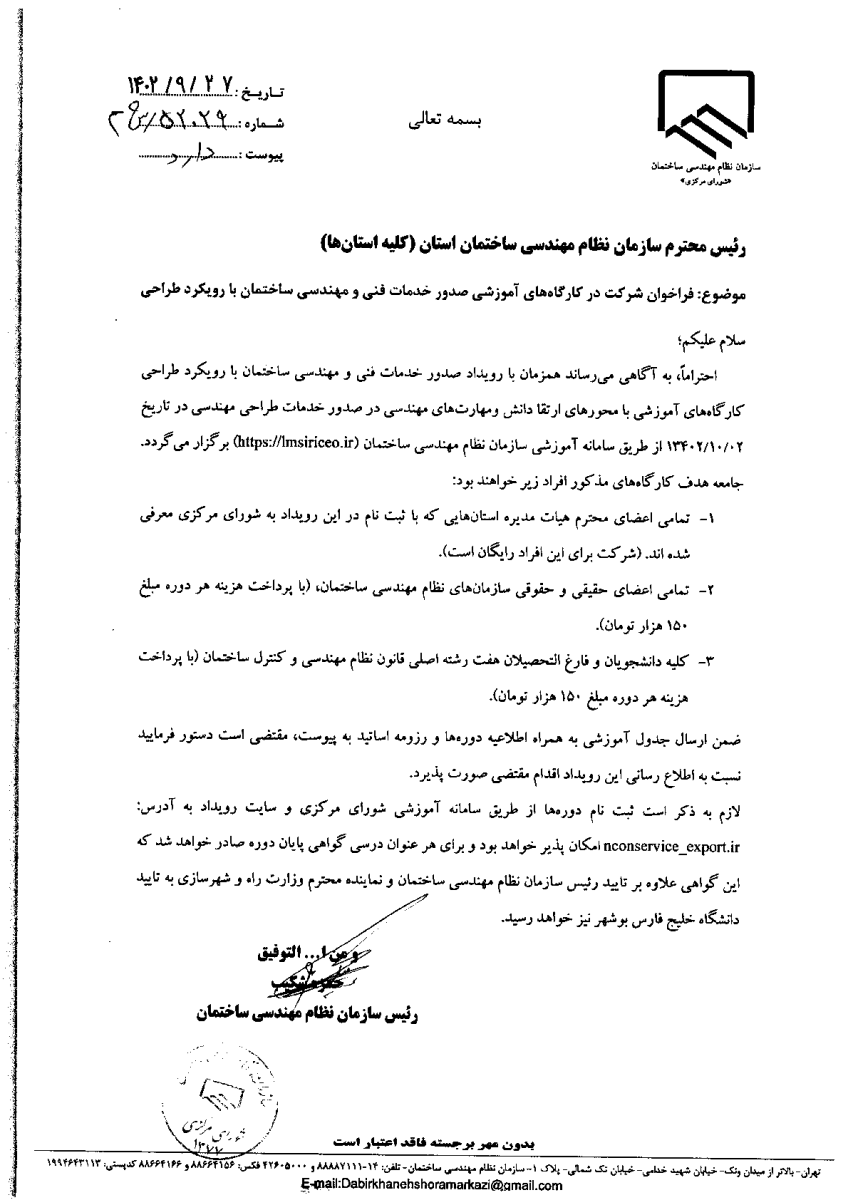 بسمه تعالی
تاریخ: ۱۴۰۲/۹/۲۷
شماره: ۵۲۰۲۹/ش م
پیوست: دارد
سازمان نظام مهندسی ساختمان
«شورای مرکزی»
رئیس محترم سازمان نظام مهندسی ساختمان استان (کلیه استان‌ها)
موضوع: فراخوان شرکت در کارگاه‌های آموزشی صدور خدمات فنی و مهندسی ساختمان با رویکرد طراحی
سلام علیکم؛
احتراماً، به آگاهی می‌رساند همزمان با رویداد صدور خدمات فنی و مهندسی ساختمان با رویکرد طراحی
کارگاه‌های آموزشی با محورهای ارتقا دانش ومهارت‌های مهندسی در صدور خدمات طراحی مهندسی در تاریخ
۱۳۴۰۲/۱۰/۰۲ از طریق سامانه آموزشی سازمان نظام مهندسی ساختمان (https://lmsiriceo.ir) برگزار می‌گردد.
جامعه هدف کارگاه‌های مذکور افراد زیر خواهند بود:
۱- تمامی اعضای محترم هیات مدیره استان‌هایی که با ثبت نام در این رویداد به شورای مرکزی معرفی
شده اند. (شرکت برای این افراد رایگان است).
۲- تمامی اعضای حقیقی و حقوقی سازمان‌های نظام مهندسی ساختمان، (با پرداخت هزینه هر دوره مبلغ
۱۵۰ هزار تومان).
۳- کلیه دانشجویان و فارغ التحصیلان هفت رشته اصلی قانون نظام مهندسی و کنترل ساختمان (با پرداخت
هزینه هر دوره مبلغ ۱۵۰ هزار تومان).
ضمن ارسال جدول آموزشی به همراه اطلاعیه دوره‌ها و رزومه اساتید به پیوست، مقتضی است دستور فرمایید
نسبت به اطلاع رسانی این رویداد اقدام مقتضی صورت پذیرد.
لازم به ذکر است ثبت نام دوره‌ها از طریق سامانه آموزشی شورای مرکزی و سایت رویداد به آدرس:
nconservice_export.ir امکان پذیر خواهد بود و برای هر عنوان درسی گواهی پایان دوره صادر خواهد شد که
این گواهی علاوه بر تایید رئیس سازمان نظام مهندسی ساختمان و نماینده محترم وزارت راه و شهرسازی به تایید
دانشگاه خلیج فارس بوشهر نیز خواهد رسید.
و من ا... التوفیق
حمزه شکیب
رئیس سازمان نظام مهندسی ساختمان
شورای مرکزی
۱۳۷۷
بدون مهر برجسته فاقد اعتبار است
تهران- بالاتر از میدان ونک- خیابان شهید خدامی- خیابان تک شمالی- پلاک ۱- سازمان نظام مهندسی ساختمان- تلفن: ۱۴-۸۸۸۸۷۱۱۱ و ۴۲۶۰۵۰۰۰ فکس: ۸۸۶۶۴۱۵۶ و ۸۸۶۶۴۱۶۶ کدپستی: ۱۹۹۴۶۴۳۱۱۳
E-mail:Dabirkhanehshoramarkazi@gmail.com